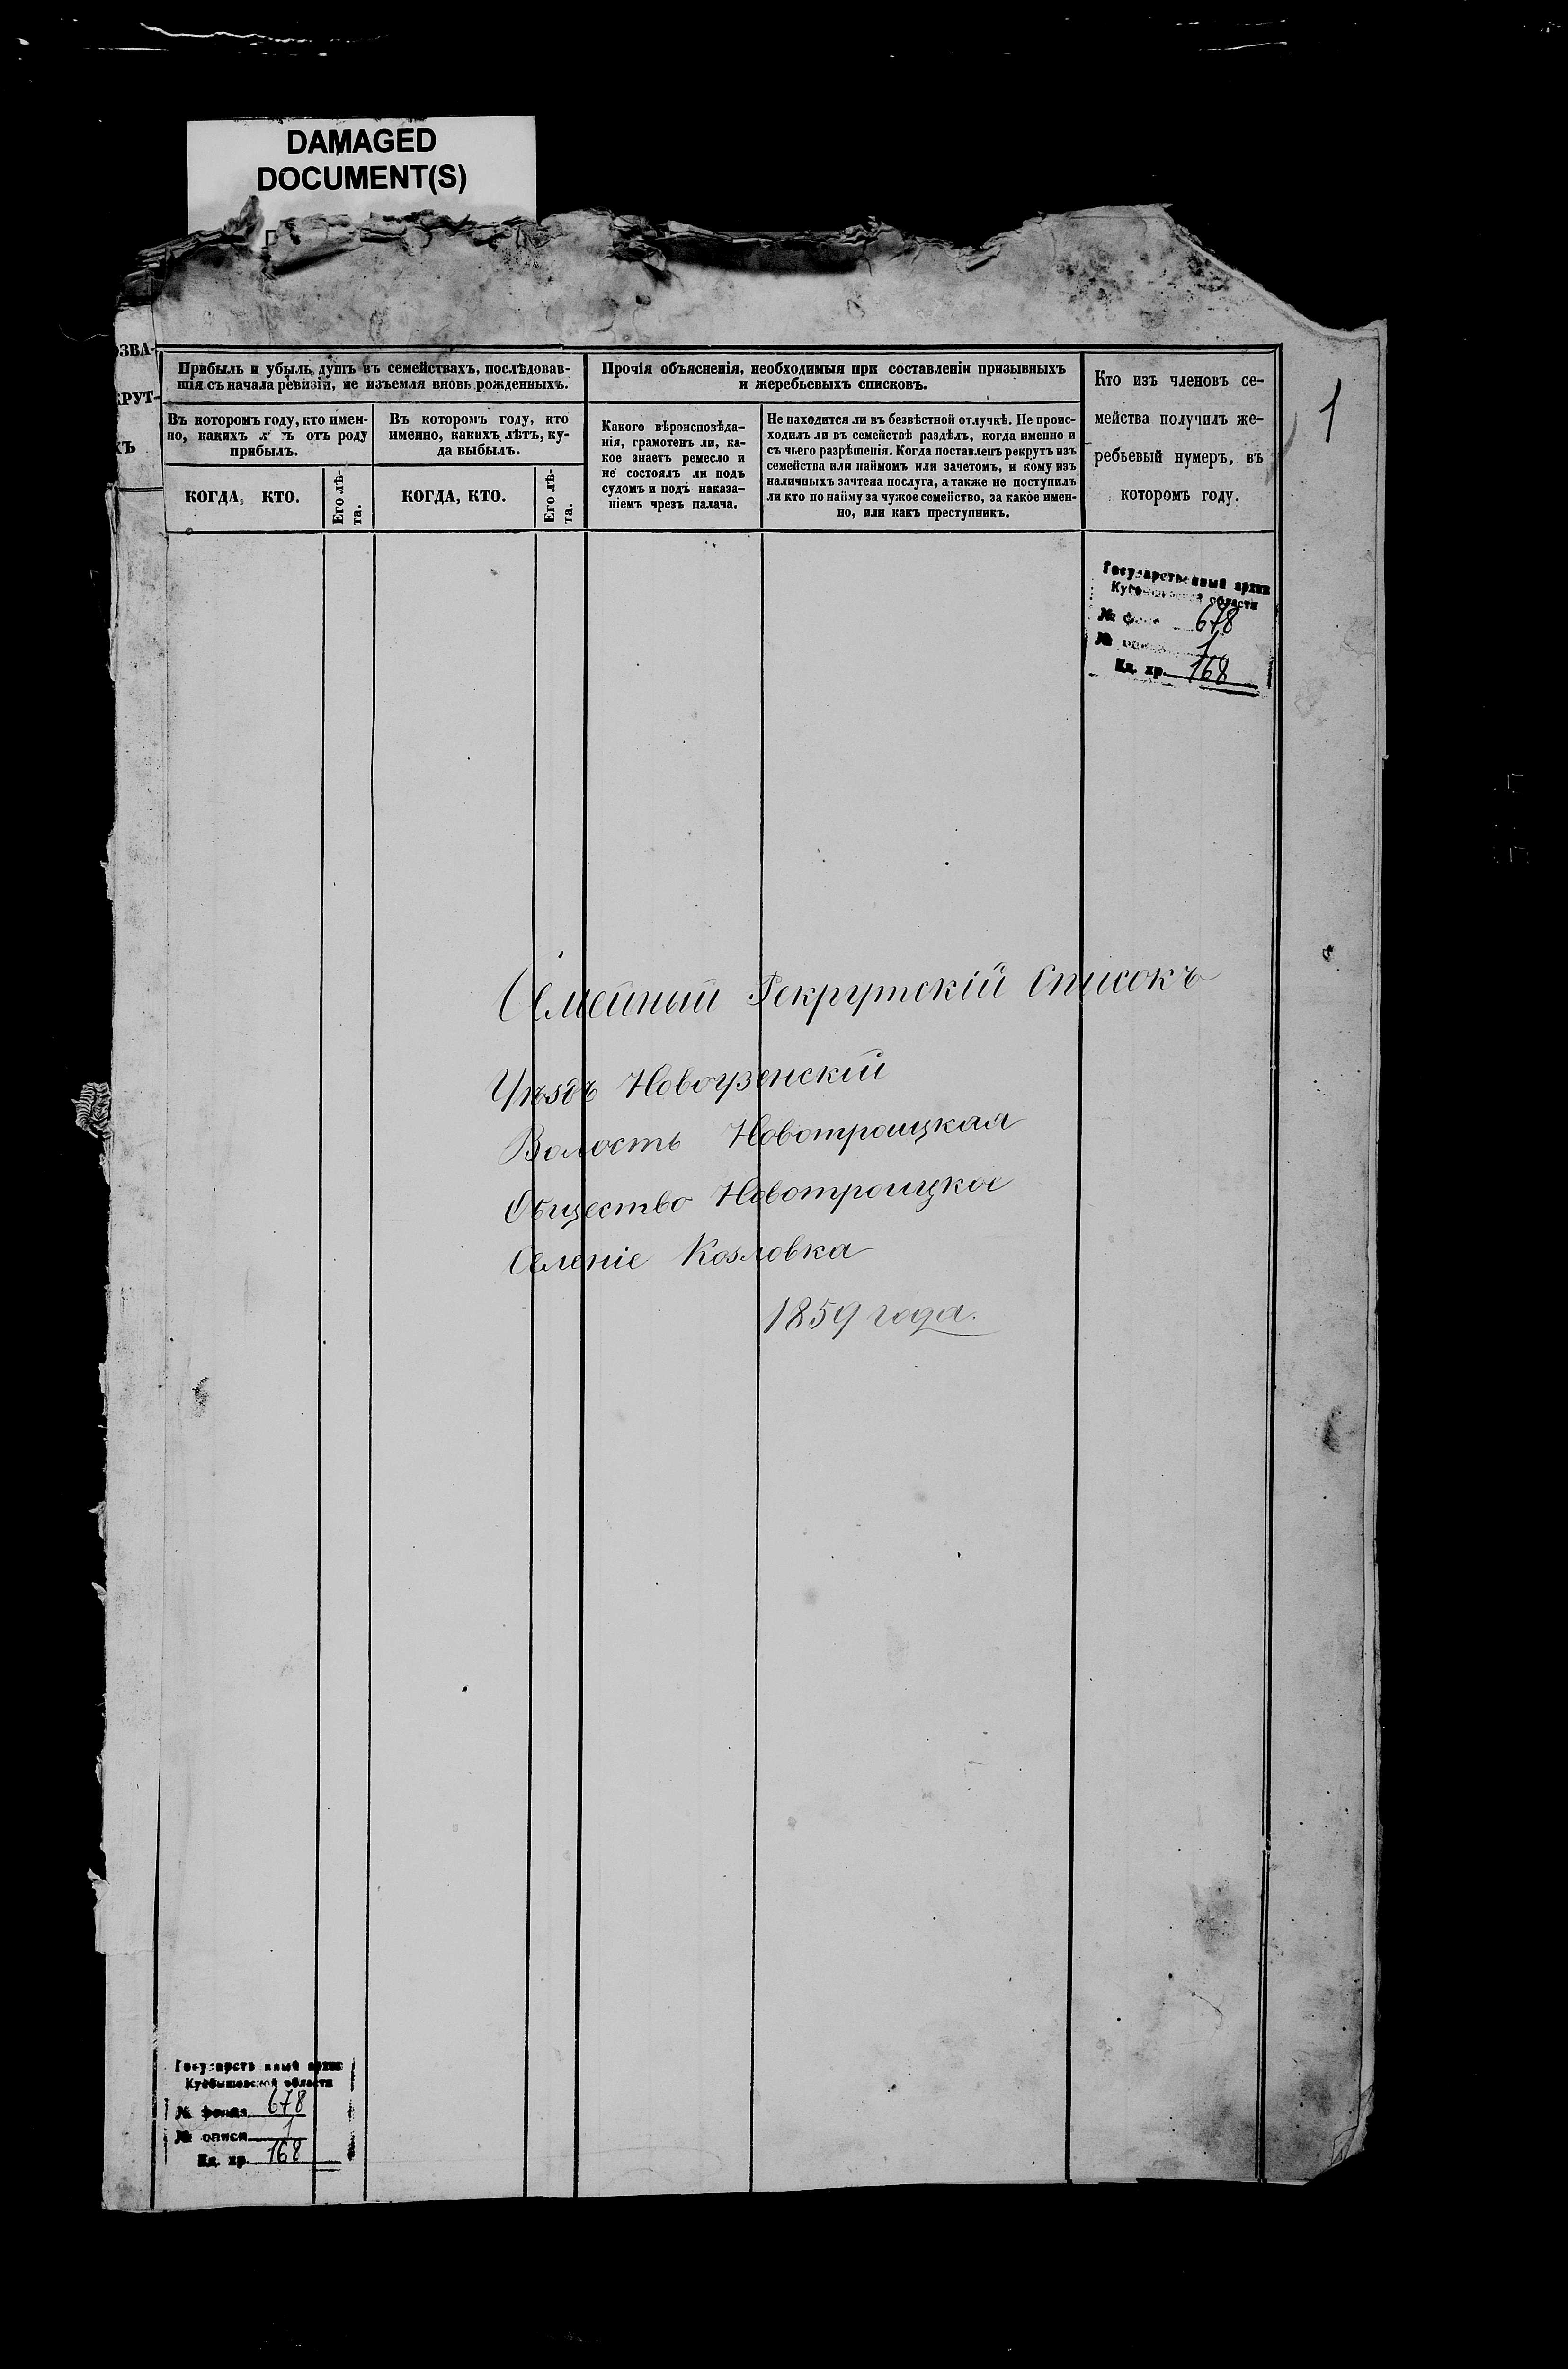 DAMAGED
DOCUMENT(S)
ОЗВА-
КРУТ-
ХЪ
Прибыль и убыль душъ въ семействахъ, послѣдовав-
шія съ начала ревизіи, не изъемля вновь рожденныхъ.
Въ которомъ году, кто имен-
но, какихъ отъ роду
прибылъ.
КОГДА, КТО.
Его лѣ-
та.
Въ которомъ году, кто
именно, какихъ лѣтъ, ку-
да выбылъ.
КОГДА, КТО.
Его лѣ-
та.
Прочія объясненія, необходимыя при составленіи призывныхъ
и жеребьевыхъ списковъ.
Какого вѣроисповѣда-
нія, грамотенъ ли, ка-
кое знаетъ ремесло и
не состоялъ ли подъ
судомъ и подъ наказа-
ніемъ чрезъ палача.
Не находится ли въ безвѣстной отлучкѣ. Не проис-
ходилъ ли въ семействѣ раздѣлъ, когда именно и
съ чьего разрѣшенія. Когда поставленъ рекрутъ изъ
семейства или наймомъ или зачетомъ, и кому изъ
наличныхъ зачтена послуга, а также не поступилъ
ли кто по найму за чужое семейство, за какое имен-
но, или какъ преступникъ.
Кто изъ членовъ се-
мейства получилъ же-
ребьевый нумеръ, въ
которомъ году.
1
Государственный архив
области
№ 678
№ 1
Ед. хр. 168
Семейный Рекрутскій Списокъ
Уѣздъ Новоузенскій
Волость Новотроицкая
Общество Новотроицкое
Селеніе Козловка
1859 года.
Государственный архив
Куйбышевской области
№ фонда 678
№ описи 1
Ед. хр. 168